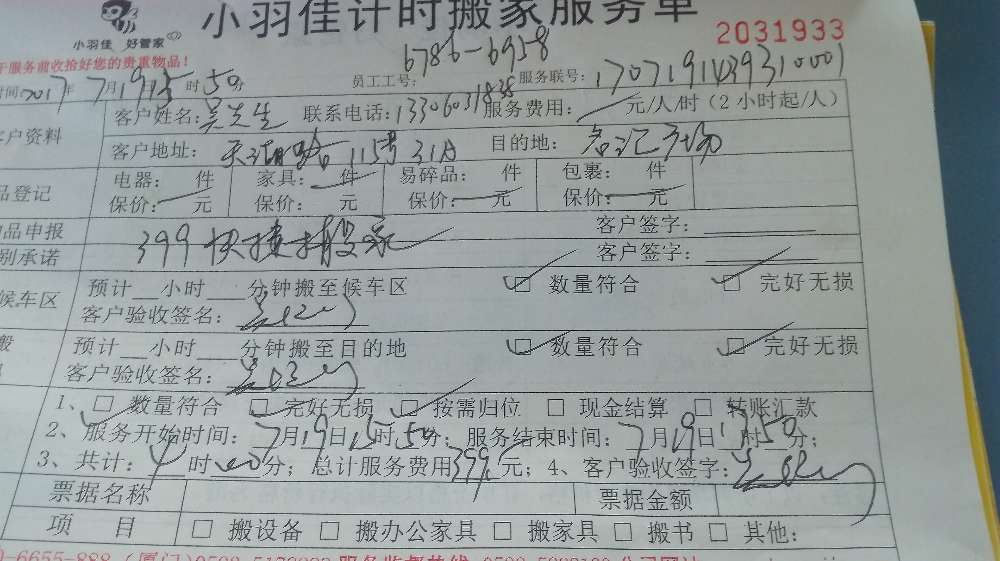 小羽佳计时搬家服务单
小羽佳 好管家
2031933
服务前收拾好您的贵重物品！
时间:2017年7月19日15时50分 员工工号: 6786-6958 服务联号:
客户资料 客户姓名:吴先生 联系电话: 服务费用: 元/人/时（2小时起/人）
客户地址: 115号31A 目的地: 名汇广场
品登记 电器: 件 家具: 件 易碎品: 件 包裹: 件
保价: 元 保价: 元 保价: 元 保价: 元
品申报 399快捷搬家 客户签字:
别承诺 客户签字:
候车区 预计 小时 分钟搬至候车区 □ 数量符合 □ 完好无损
客户验收签名:
搬 预计 小时 分钟搬至目的地 □ 数量符合 □ 完好无损
客户验收签名:
1、□ 数量符合 □ 完好无损 □ 按需归位 □ 现金结算 □ 转账汇款
2、服务开始时间: 7月19日15时50分; 服务结束时间: 7月19日 时50分;
3、共计: 时 分; 总计服务费用399元; 4、客户验收签字:
票据名称 票据金额
项 目 □ 搬设备 □ 搬办公家具 □ 搬家具 □ 搬书 □ 其他:
-6655-888